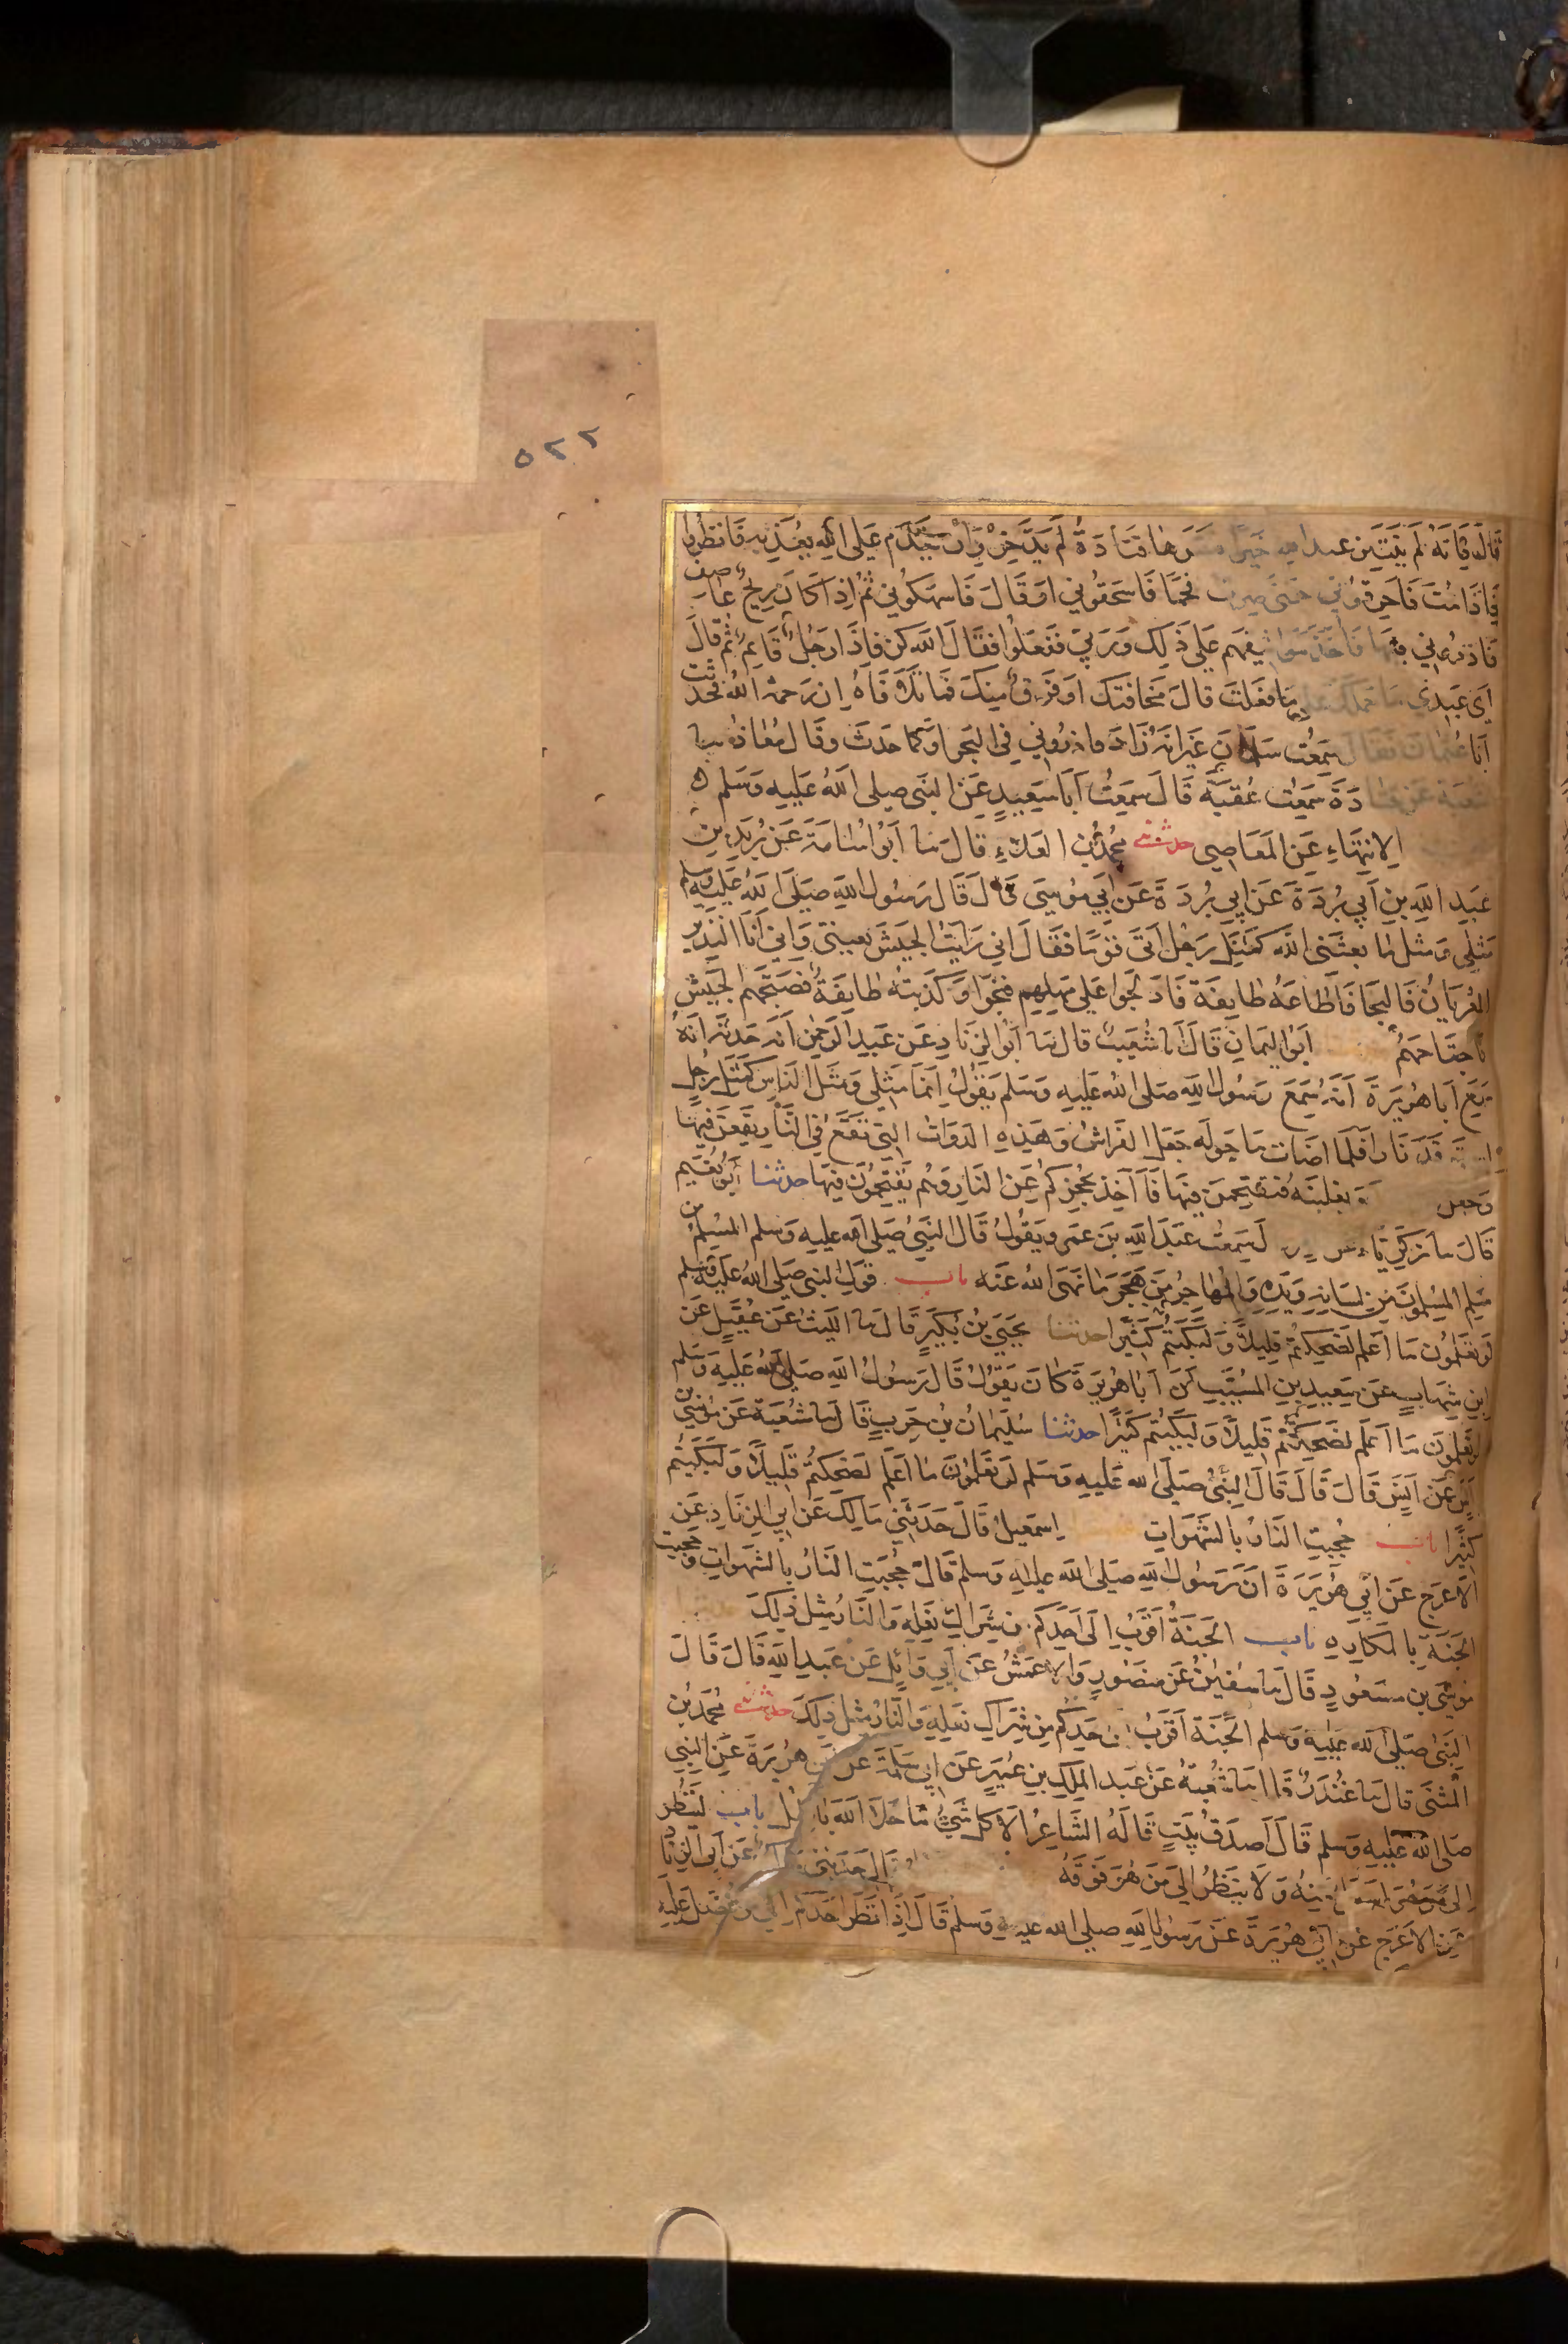 ٥٢٢
قَالَ فَاِنَّهُ لَمْ يَبْتَئِرْ عِنْدَ اللهِ خَيْرًا فَسَّرَهَا قَتَادَةُ لَمْ يَدَّخِرْ وَاِنْ يَقْدَمْ عَلَى اللهِ يُعَذِّبْهُ فَانْظُرُوا
فَاِذَا مُتُّ فَاَحْرِقُوْنِي حَتَّى صِرْتُ فَحْمًا فَاسْحَقُوْنِي اَوْ قَالَ فَاسْهَكُوْنِي ثُمَّ اِذَا كَانَ رِيحٌ عَاصِفٌ
فَاَذْرُوْنِي فِيْهَا فَاَخَذَ مَوَاثِيْقَهُمْ عَلَى ذٰلِكَ وَرَبِّي فَفَعَلُوا فَقَالَ اللهُ كُنْ فَاِذَا رَجُلٌ قَائِمٌ ثُمَّ قَالَ
اَيْ عَبْدِي مَا حَمَلَكَ عَلَى مَا فَعَلْتَ قَالَ مَخَافَتُكَ اَوْ فَرَقٌ مِنْكَ فَمَا تَلَافَاهُ اِنْ رَحِمَهُ اللهُ فَحَدَّثْتُ
اَبَا عُثْمَانَ فَقَالَ سَمِعْتُ سَلْمَانَ غَيْرَ اَنَّهُ زَادَ فَاذْرُوْنِي فِي الْبَحْرِ اَوْ كَمَا حَدَّثَ وَقَالَ مُعَاذٌ نَا
شُعْبَةُ عَنْ قَتَادَةَ سَمِعْتُ عُقْبَةَ قَالَ سَمِعْتُ اَبَا سَعِيْدٍ عَنِ النَّبِي صلى اللهُ عَلَيْهِ وَسَلَّم
الِانْتِهَاءِ عَنِ الْمَعَاصِي حدثنا مُحَمَّدُ بْنُ الْعَلَاءِ قَالَ نَا اَبُوْ اُسَامَةَ عَنْ بُرَيْدِ بْنِ
عَبْدِ اللهِ بْنِ اَبِي بُرْدَةَ عَنْ اَبِي بُرْدَةَ عَنْ اَبِي مُوْسَى قَالَ قَالَ رَسُوْلُ اللهِ صَلَّى اللهُ عَلَيْهِ وسلم
مَثَلِي وَمَثَلُ مَا بَعَثَنِي اللهُ كَمَثَلِ رَجُلٍ اَتَى قَوْمًا فَقَالَ اِنِّي رَاَيْتُ الْجَيْشَ بِعَيْنَيَّ وَاِنِّي اَنَا النَّذِيْرُ
الْعُرْيَانُ فَالنَّجَا فَاَطَاعَهُ طَائِفَةٌ فَادَّلَجُوا عَلَى مَهْلِهِمْ فَنَجَوْا وَكَذَّبَتْهُ طَائِفَةٌ فَصَبَّحَهُمُ الْجَيْشُ
فَاجْتَاحَهُمْ اَبُو الْيَمَانِ قَالَ اَنَا شُعَيْبٌ قَالَ نَا اَبُو الزِّنَادِ عَنْ عَبْدِ الرَّحْمٰنِ اَنَّهُ حَدَّثَهُ اَنَّهُ
سَمِعَ اَبَا هُرَيْرَةَ اَنَّهُ سَمِعَ رَسُوْلَ اللهِ صَلَّى اللهُ عَلَيْهِ وَسَلَّمَ يَقُوْلُ اِنَّمَا مَثَلِي وَمَثَلُ النَّاسِ كَمَثَلِ رَجُلٍ
اسْتَوْقَدَ نَارًا فَلَمَّا اَضَاءَتْ مَا حَوْلَهُ جَعَلَ الْفَرَاشُ وَهٰذِهِ الدَّوَابُّ الَّتِي تَقَعُ فِي النَّارِ يَقَعْنَ فِيْهَا
وَجَعَلَ وَيَغْلِبْنَهُ فَيَقْتَحِمْنَ فِيْهَا فَاَنَا آخِذٌ بِحُجَزِكُمْ عَنِ النَّارِ وَهُمْ يَقْتَحِمُوْنَ فِيْهَا حدثنا اَبُوْ نُعَيْمٍ
قَالَ نَا زَكَرِيَّاءُ عَنْ لَ سَمِعْتُ عَبْدَ اللهِ بْنَ عَمْرٍو يَقُوْلُ قَالَ النَّبِيُّ صَلَّى اللهُ عَلَيْهِ وَسلم الْمُسْلِمُ مَنْ
سَلِمَ الْمُسْلِمُوْنَ مِنْ لِسَانِهِ وَيَدِهِ وَالْمُهَاجِرُ مَنْ هَجَرَ مَا نَهَى اللهُ عَنْهُ باب قَوْلِ النبي صَلَّى اللهُ عَلَيْهِ وسلم
لَوْ تَعْلَمُوْنَ مَا اَعْلَمُ لَضَحِكْتُمْ قَلِيْلًا وَلَبَكَيْتُمْ كَثِيْرًا حدثنا يَحْيَى بْنُ بُكَيْرٍ قَالَ نَا اللَّيْثُ عَنْ عُقَيْلٍ عَنِ
ابْنِ شِهَابٍ عَنْ سَعِيْدِ بْنِ الْمُسَيَّبِ اَنَّ اَبَا هُرَيْرَةَ كَانَ يَقُوْلُ قَالَ رَسُوْلُ اللهِ صَلَّى اللهُ عَلَيْهِ وَسَلَّم
لَوْ تَعْلَمُوْنَ مَا اَعْلَمُ لَضَحِكْتُمْ قَلِيْلًا وَلَبَكَيْتُمْ كَثِيْرًا حدثنا سُلَيْمَانُ بْنُ حَرْبٍ قَالَ نَا شُعْبَةُ عَنْ مُوْسَى بْنِ
اَنَسٍ عَنْ اَنَسٍ قَالَ قَالَ النَّبِيُّ صَلَّى الله عَلَيْهِ وَسَلَّم لَوْ تَعْلَمُوْنَ مَا اَعْلَمُ لَضَحِكْتُمْ قَلِيْلًا وَلَبَكَيْتُمْ
كَثِيْرًا باب حُجِبَتِ النَّارُ بِالشَّهَوَاتِ اِسْمٰعِيْلُ قَالَ حَدَّثَنِي مَالِكٌ عَنْ اَبِي الزِّنَادِ عَنِ
الْاَعْرَجِ عَنْ اَبِي هُرَيْرَةَ اَنَّ رَسُوْلَ اللهِ صَلَّى اللهُ عَلَيْهِ وَسلم قَالَ حُجِبَتِ النَّارُ بِالشَّهَوَاتِ وَحُجِبَتِ
الْجَنَّةُ بِالْمَكَارِهِ باب الْجَنَّةُ اَقْرَبُ اِلَى اَحَدِكُمْ مِنْ شِرَاكِ نَعْلِهِ وَالنَّارُ مِثْلُ ذٰلِكَ
مُوْسَى بْنُ مَسْعُوْدٍ قَالَ نَا سُفْيٰنُ عَنْ مَنْصُوْرٍ وَالْاَعْمَشُ عَنْ اَبِي وَائِلٍ عَنْ عَبْدِ اللهِ قَالَ قَالَ
النَّبِيُّ صَلَّى اللهُ عَلَيْهِ وَسلم الْجَنَّةُ اَقْرَبُ اِلَى اَحَدِكُمْ مِنْ شِرَاكِ نَعْلِهِ وَالنَّارُ مِثْلُ ذٰلِكَ حدثنا مُحَمَّدُ بْنُ
الْمُثَنَّى قَالَ نَا غُنْدَرٌ قَالَ نَا شُعْبَةُ عَنْ عَبْدِ الْمَلِكِ بْنِ عُمَيْرٍ عَنْ اَبِي سَلَمَةَ عَنْ اَبِي هُرَيْرَةَ عَنِ النَّبِي
صَلَّى اللهُ عَلَيْهِ وَسلم قَالَ اَصْدَقُ بَيْتٍ قَالَهُ الشَّاعِرُ اَلَا كُلُّ شَيْءٍ مَا خَلَا اللهَ بَاطِلُ باب لِيَنْظُرْ
اِلَى مَنْ هُوَ اَسْفَلَ مِنْهُ وَلَا يَنْظُرْ اِلَى مَنْ هُوَ فَوْقَهُ قَالَ حَدَّثَنِي مَالِكٌ عَنْ اَبِي الزِّنَادِ
عَنِ الْاَعْرَجِ عَنْ اَبِي هُرَيْرَةَ عَنْ رَسُوْلِ اللهِ صلى الله عليه وَسلم قَالَ اِذَا نَظَرَ اَحَدُكُمْ اِلَى مَنْ فُضِّلَ عَلَيْهِ